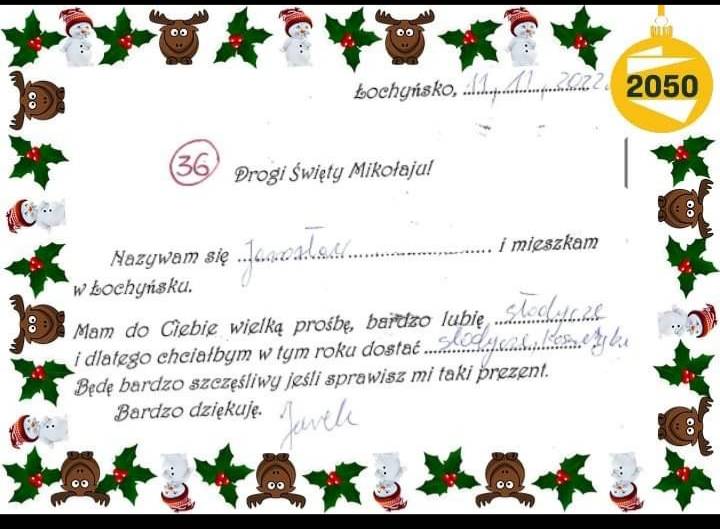 2050
Łochyńsko, 11.11.2022
36
Drogi Święty Mikołaju!
Nazywam się Jarosław i mieszkam
w Łochyńsku.
Mam do Ciebie wielką prośbę, bardzo lubię słodycze
i dlatego chciałbym w tym roku dostać słodycze, kosmetyki
Będę bardzo szczęśliwy jeśli sprawisz mi taki prezent.
Bardzo dziękuję. Jarek